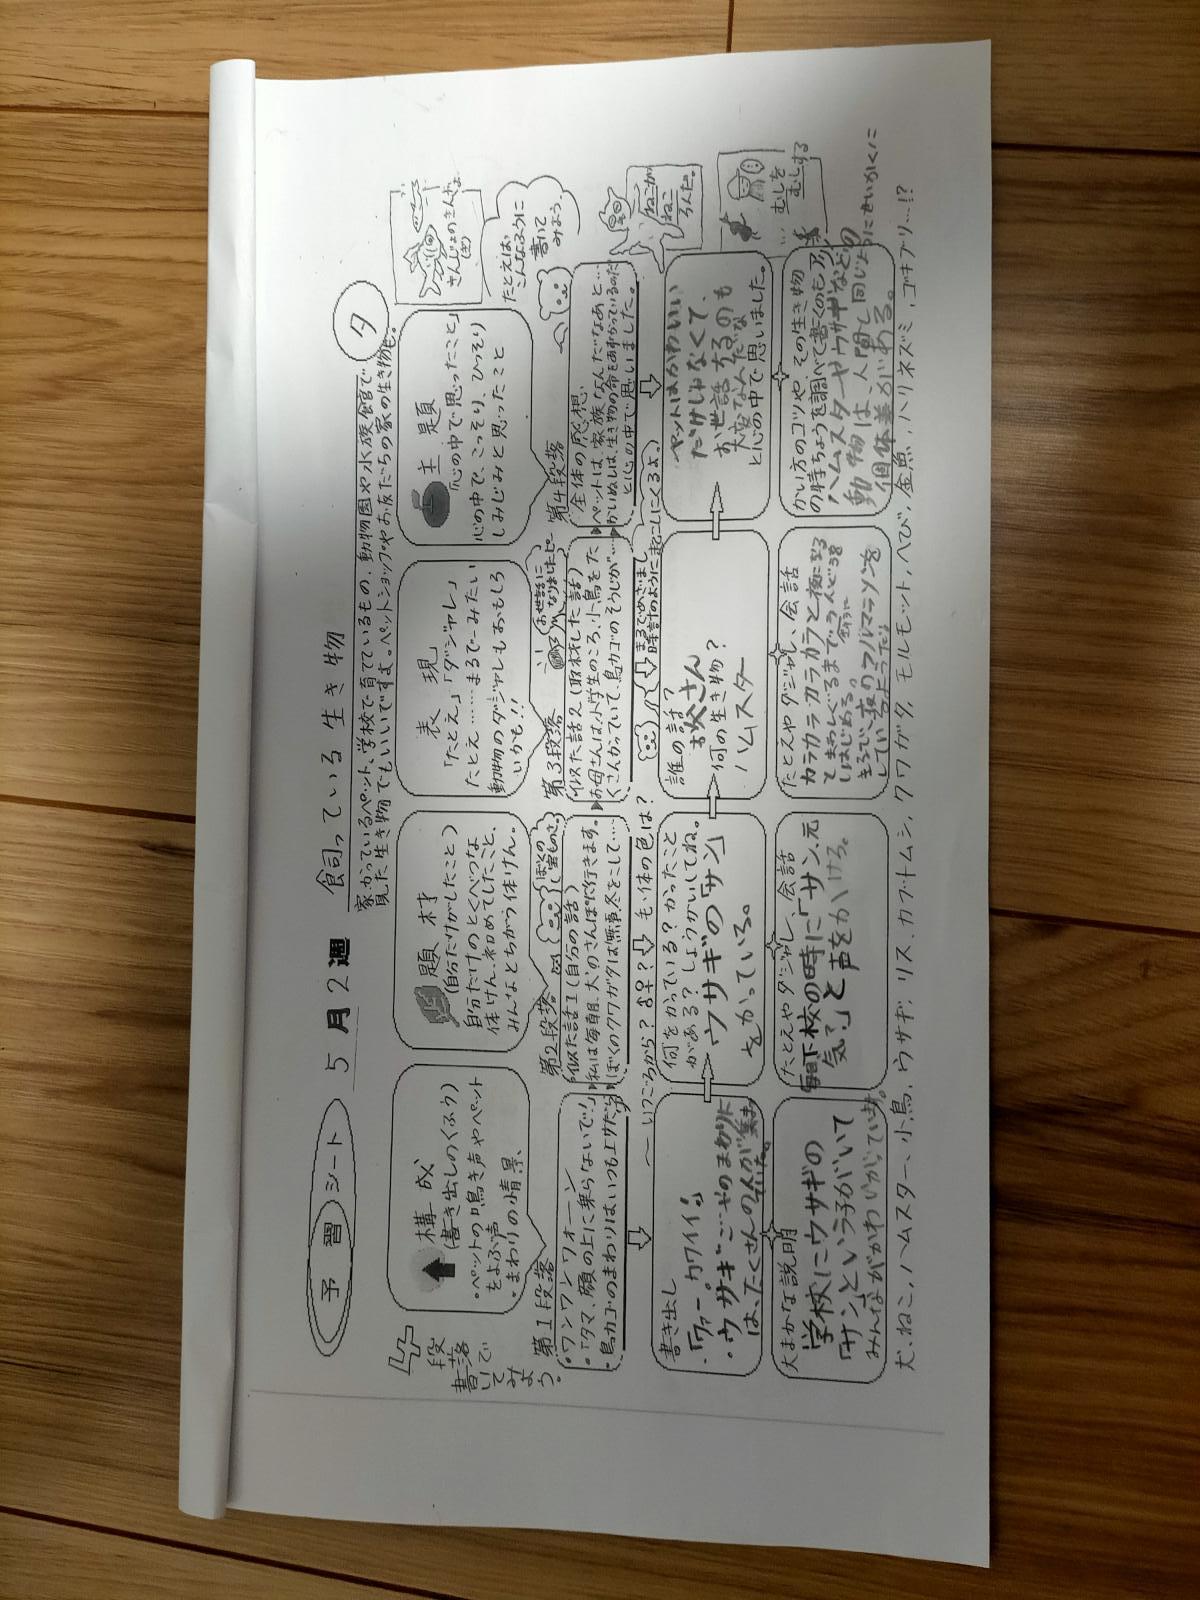 予習シート
5月2週
飼っている生き物
タ
家でかっているペット、学校で育てているもの、動物園や水族館で
見た生き物でもいいですよ。ペットショップやお友だちの家の生き物も。
段落で
書いて
みよう。
構成
(書き出しのくふう)
・ペットの鳴き声やペット
をよぶ声
・まわりの情景
題材
(自分だけがしたこと)
自分だけのとくべつな
体けん、初めてしたこと、
みんなとちがう体けん。
表現
「たとえ」「ダジャレ」
たとえ……まるで~みたい
動物のダジャレもおもしろ
いかも!!
主題
「心の中で思ったこと」
心の中で、こっそり、ひっそり
しみじみと思ったこと
たとえば、
こんなふうに
書いて
みよう。
第1段落
・ワンワンワフォーン
・「タマ、顔の上に乗らないで!」
・鳥カゴのまわりはいつも
第2段落
似た話1(自分の話)
私は毎朝、犬のさんぽに行きます。
ぼくのクワガタは無事、冬をこして……
ぼくの
宝ものさ。
第3段落
似た話2(取材した話)
お母さんは小学生のころ、小鳥をた
くさんかっていて、鳥カゴのそうじが…
お世話に
なりました ピー
第4段落
全体の感想
ペットは、家族なんだなあと…
かいぬしは、生き物の命をあずかっているのだ
と心の中で思いました。
ねこが
ねこ
ろんだ。
むしを
むしする
いつごろから? ♂♀? 毛・体の色は?
まるでめざまし
時計のように起こしにくるよ。
書き出し
・「ワァー、カワイイ!」
・ウサギごやのまわりに
は、たくさんの人が集まっ
ていた。
何をかっている?かったこと
がある?しょうかいしてね。
ウサギの「サン」
をかっている。
誰の話?
お父さん
何の生き物?
ハムスター
ペットはかわいい
だけじゃなくて、
お世話するのも
大変なんだな
と心の中で思いました。
大まかな説明
学校にウサギの
「サン」という子がいて
みんながかわいがっています。
たとえやダジャレ、会話
毎日下校の時に「サン、元
気?」と声をかける。
たとえやダジャレ、会話
カラカラカラカラと夜になる
はじめる。
まるで、夜のフルマラソンを
しているようだった。
かい方のコツや、その生き物
の特ちょうを調べて書くのもアリ
ハムスターやウサギなどの
動物は、人間と同じように
個体差がある。
犬、ねこ、ハムスター、小鳥、ウサギ、リス、カブトムシ、クワガタ、モルモット、ヘビ、金魚、ハリネズミ、ゴキブリ…!?